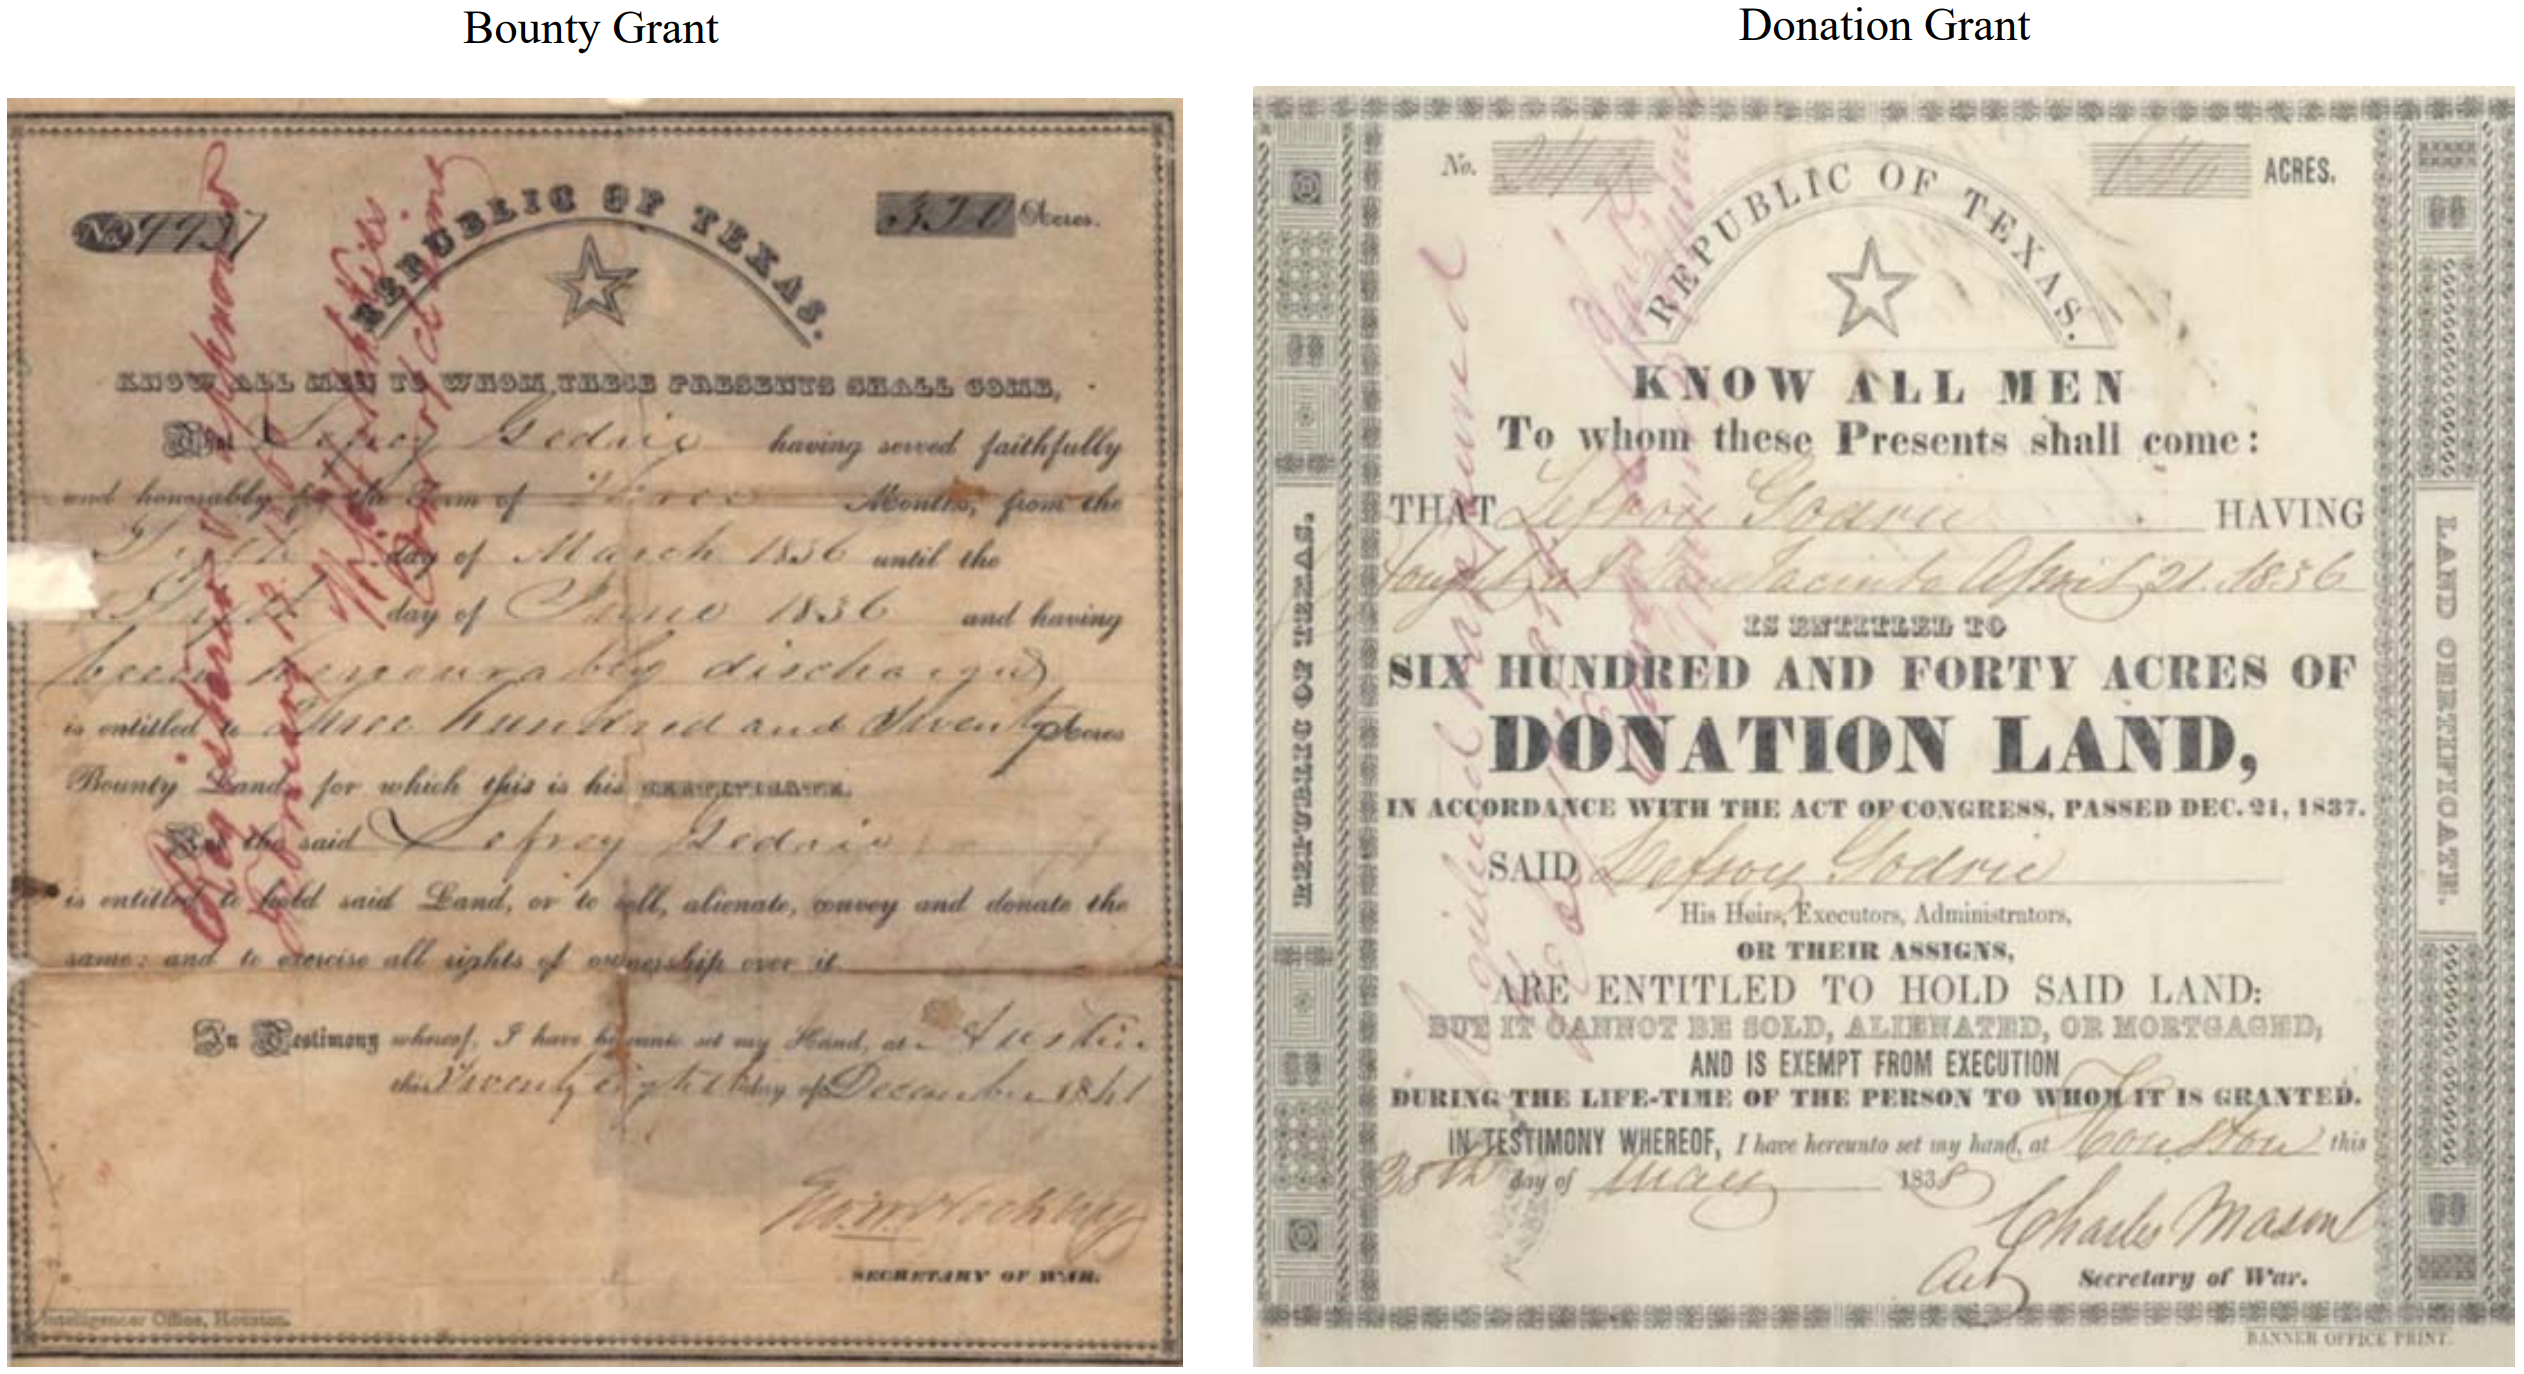 Bounty Grant
No. 9937
320 Acres.
REPUBLIC OF TEXAS.
KNOW ALL MEN TO WHOM THESE PRESENTS SHALL COME,
That Lefroy Gedrie having served faithfully
and honorably for the Term of Three Months, from the
day of March 1836 until the
day of June 1836 and having
been honourably discharged
is entitled to Three hundred and Twenty Acres
Bounty Land, for which this is his CERTIFICATE.
And the said Lefroy Gedrie
is entitled to hold said Land, or to sell, alienate, convey and donate the
same: and to exercise all rights of ownership over it
In Testimony whereof, I have hereunto set my Hand, at Austin
this Twenty eighth day of December 1841
Geo. W. Hockley
SECRETARY OF WAR.
Intelligencer Office, Houston.
Donation Grant
No.
640 ACRES.
REPUBLIC OF TEXAS.
KNOW ALL MEN
To whom these Presents shall come:
THAT Lefroy Godrie HAVING
fought at San Jacinto April 21. 1836
IS ENTITLED TO
SIX HUNDRED AND FORTY ACRES OF
DONATION LAND,
IN ACCORDANCE WITH THE ACT OF CONGRESS, PASSED DEC. 21, 1837.
SAID Lefroy Godrie
His Heirs, Executors, Administrators,
OR THEIR ASSIGNS,
ARE ENTITLED TO HOLD SAID LAND:
BUT IT CANNOT BE SOLD, ALIENATED, OR MORTGAGED,
AND IS EXEMPT FROM EXECUTION
DURING THE LIFE-TIME OF THE PERSON TO WHOM IT IS GRANTED.
IN TESTIMONY WHEREOF, I have hereunto set my hand, at Houston this
30th day of May 1838
Charles Mason
Act Secretary of War.
LAND CERTIFICATE.
BANNER OFFICE PRINT.